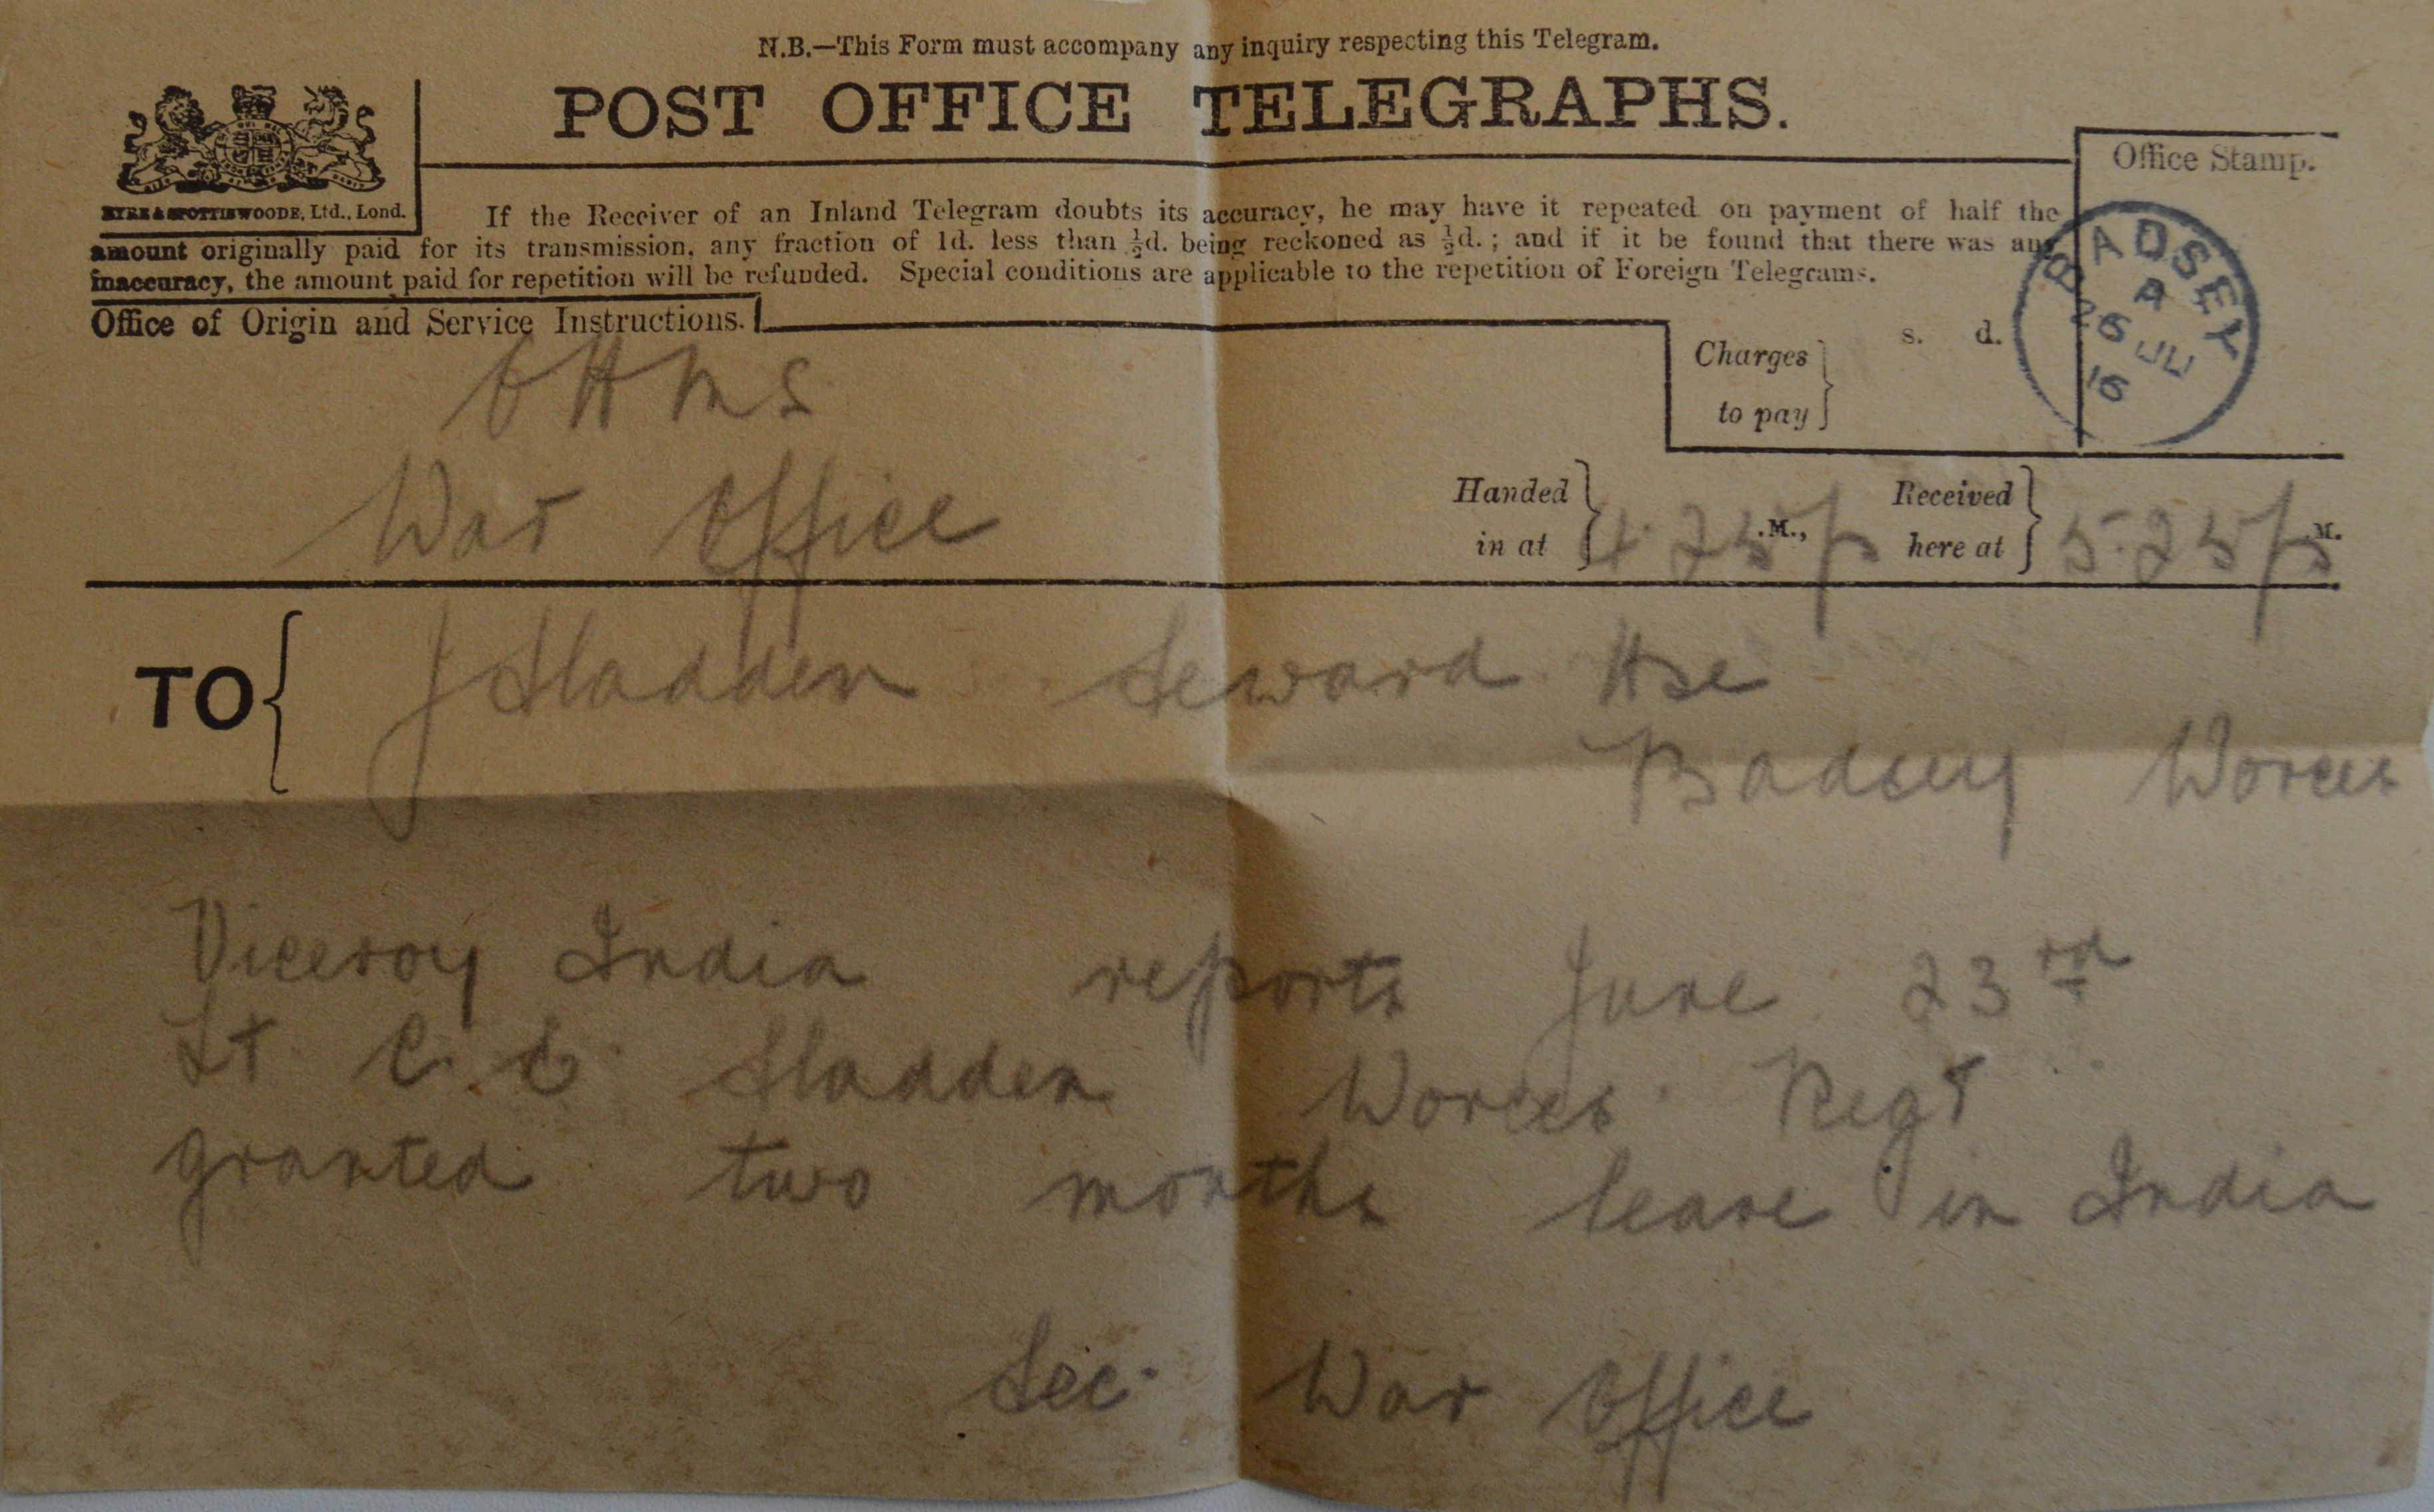 N.B.—This Form must accompany any inquiry respecting this Telegram.
POST OFFICE TELEGRAPHS.
EYRE & SPOTTISWOODE, Ltd., Lond.
If the Receiver of an Inland Telegram doubts its accuracy, he may have it repeated on payment of half the
amount originally paid for its transmission, any fraction of 1d. less than ½d. being reckoned as ½d.; and if it be found that there was any
inaccuracy, the amount paid for repetition will be refunded. Special conditions are applicable to the repetition of Foreign Telegrams.
Office Stamp.
BADSEY
A
26 JU
16
Office of Origin and Service Instructions.
Charges to pay } s. d.
OHMS
War Office
Handed in at } 4.25 p .M., Received here at } 5.25 p .M.
TO { J Sladden Seward Hse
Badsey Worces
Viceroy India reports June 23rd
Lt C. C. Sladden Worces Regt
granted two months leave in India
Sec. War Office